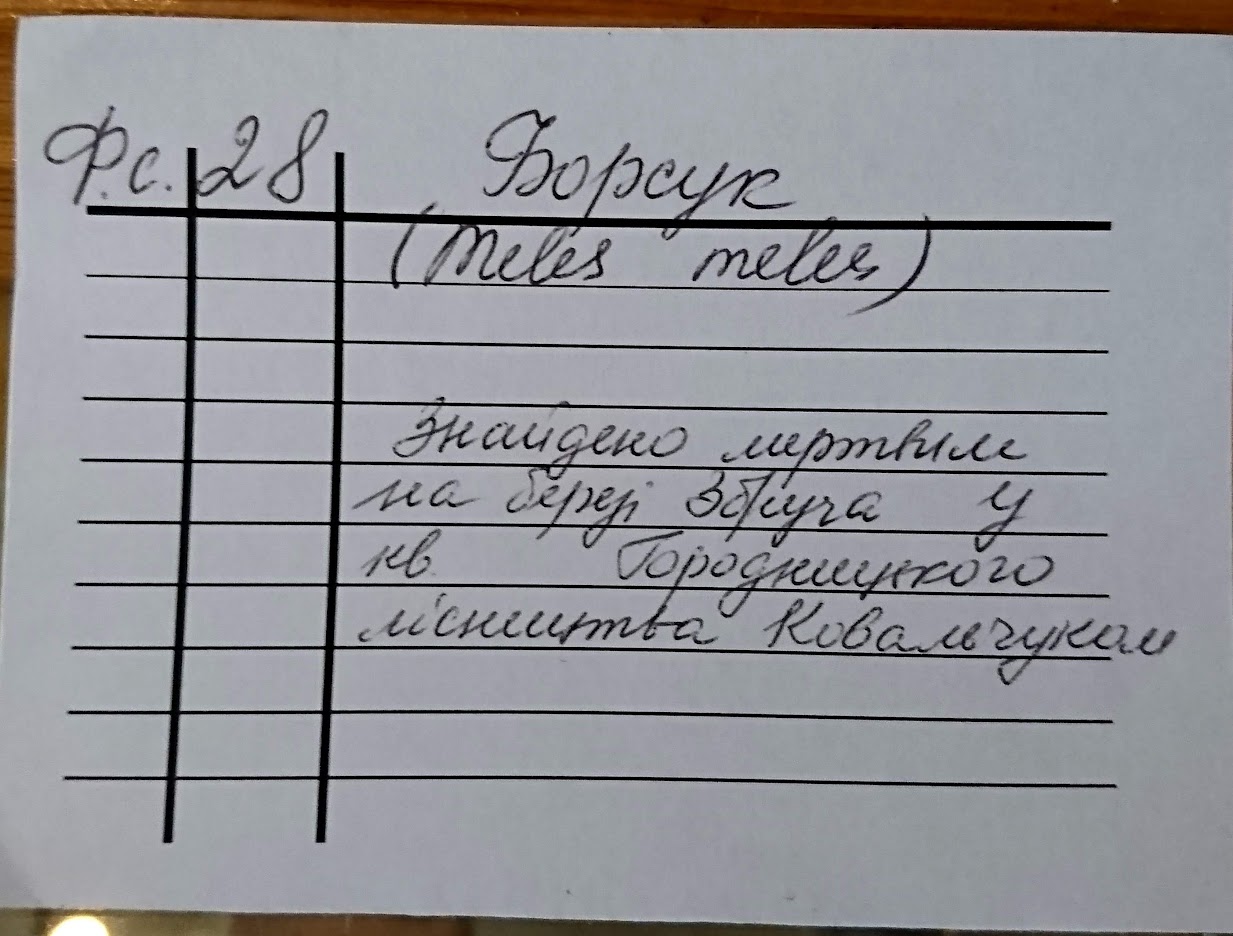 Ф.с. 28 Борсук
(Meles meles)
Знайдено мертвим
на березі Збруча у
кв. Городницького
лісництва Ковальчуком